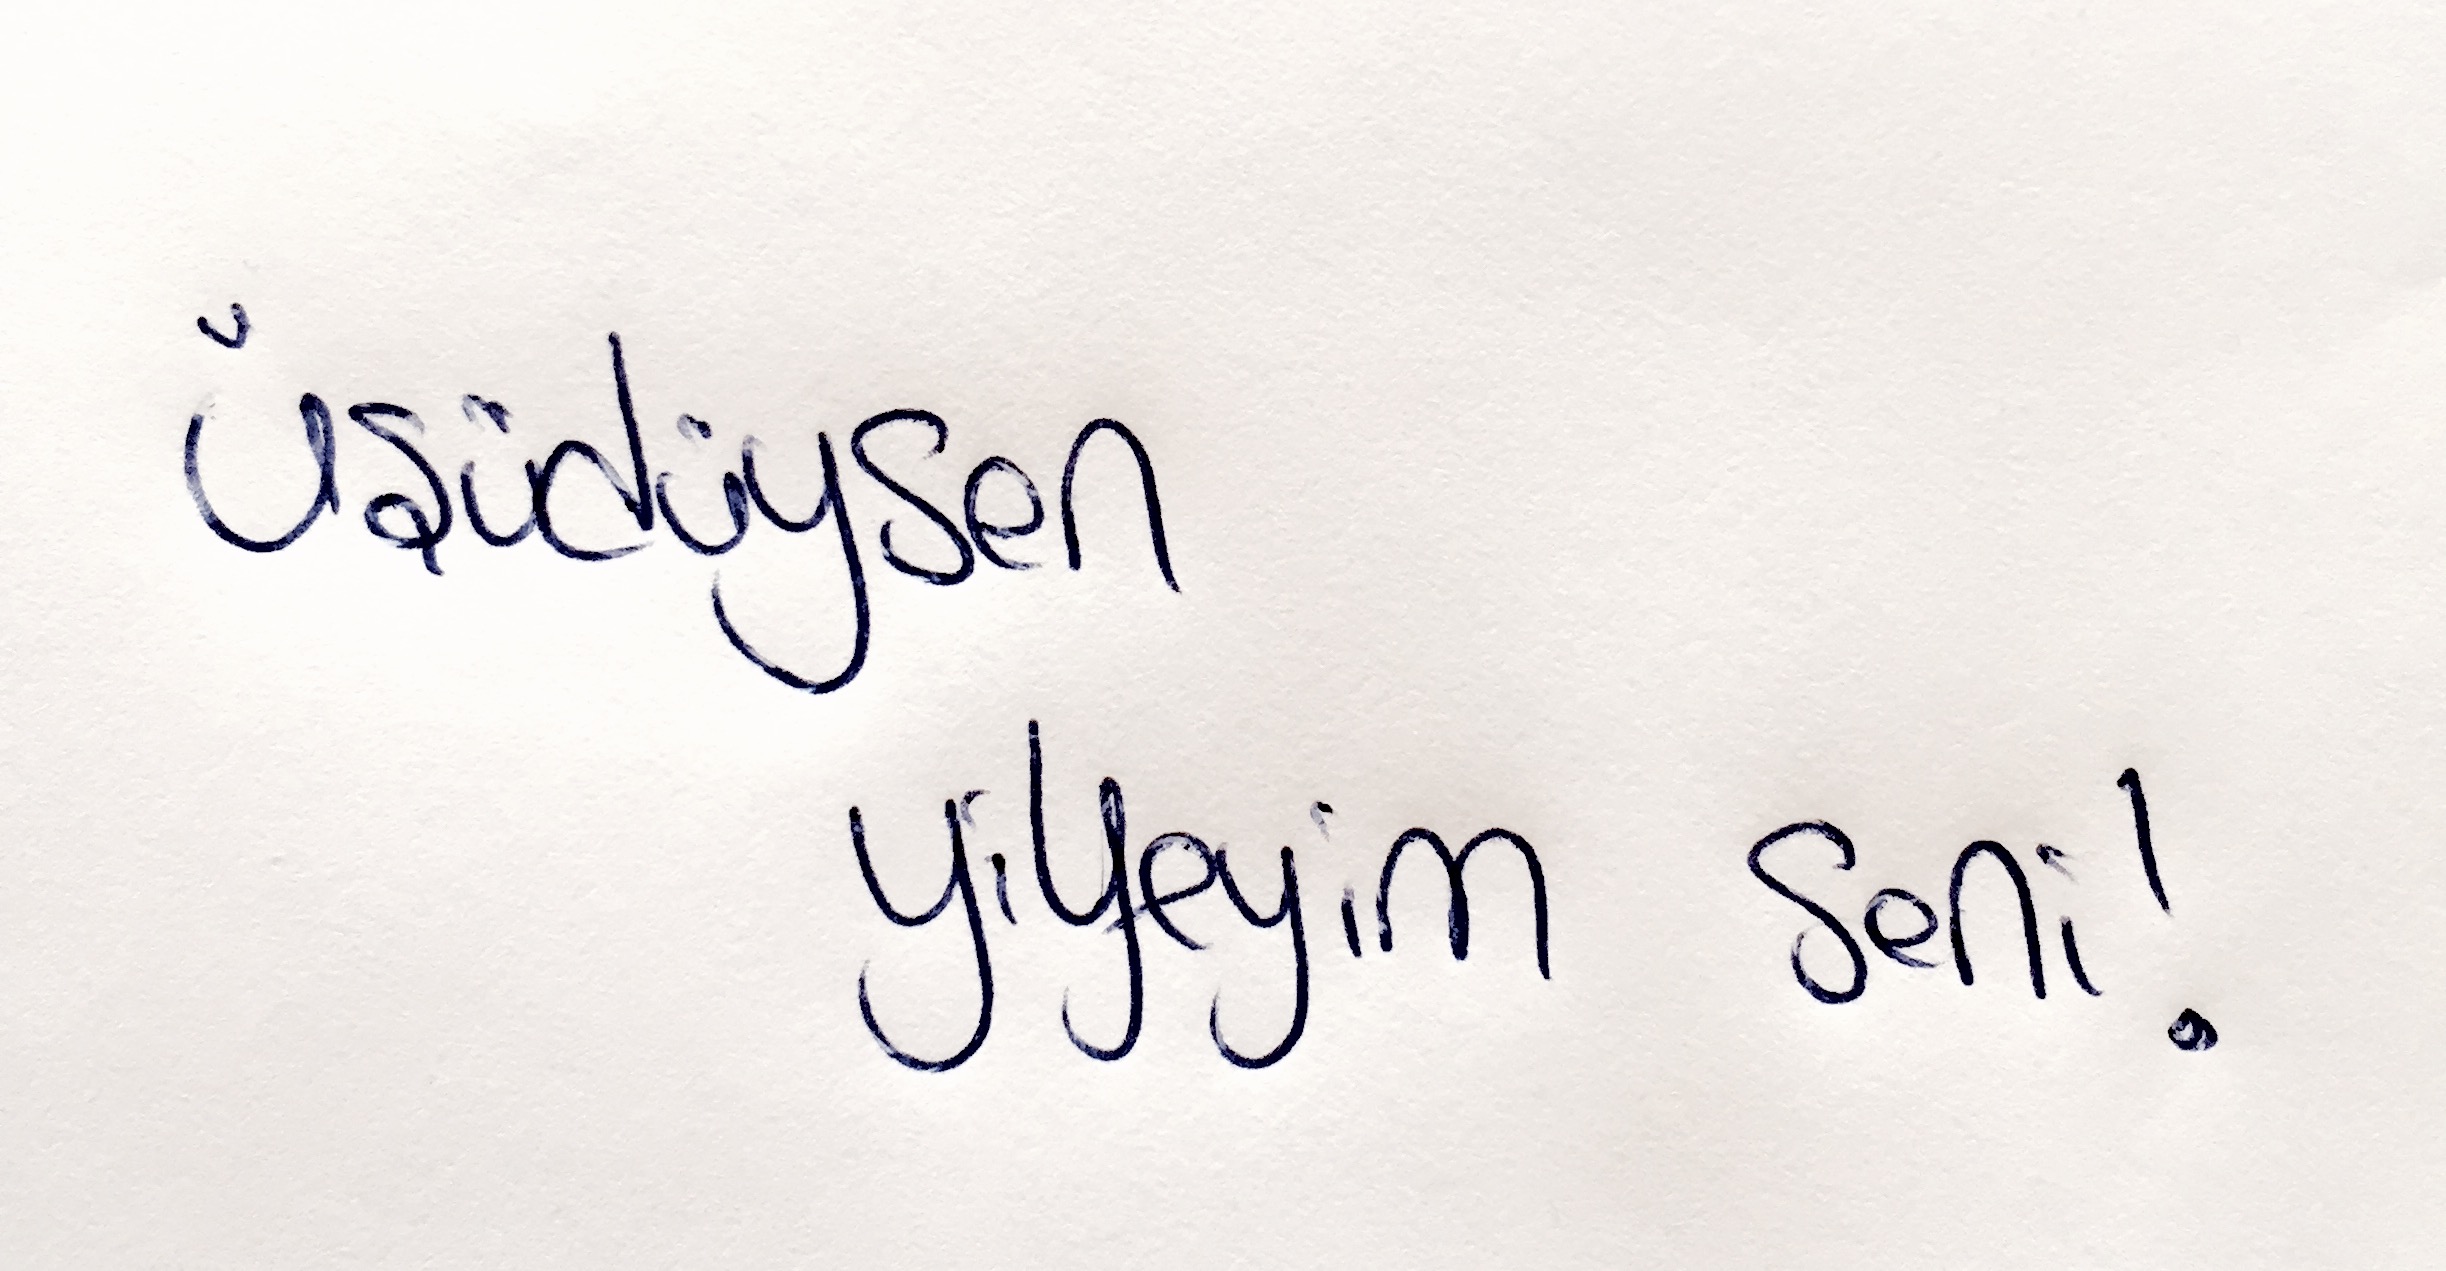 Üşüdüysen
yiyeyim seni!